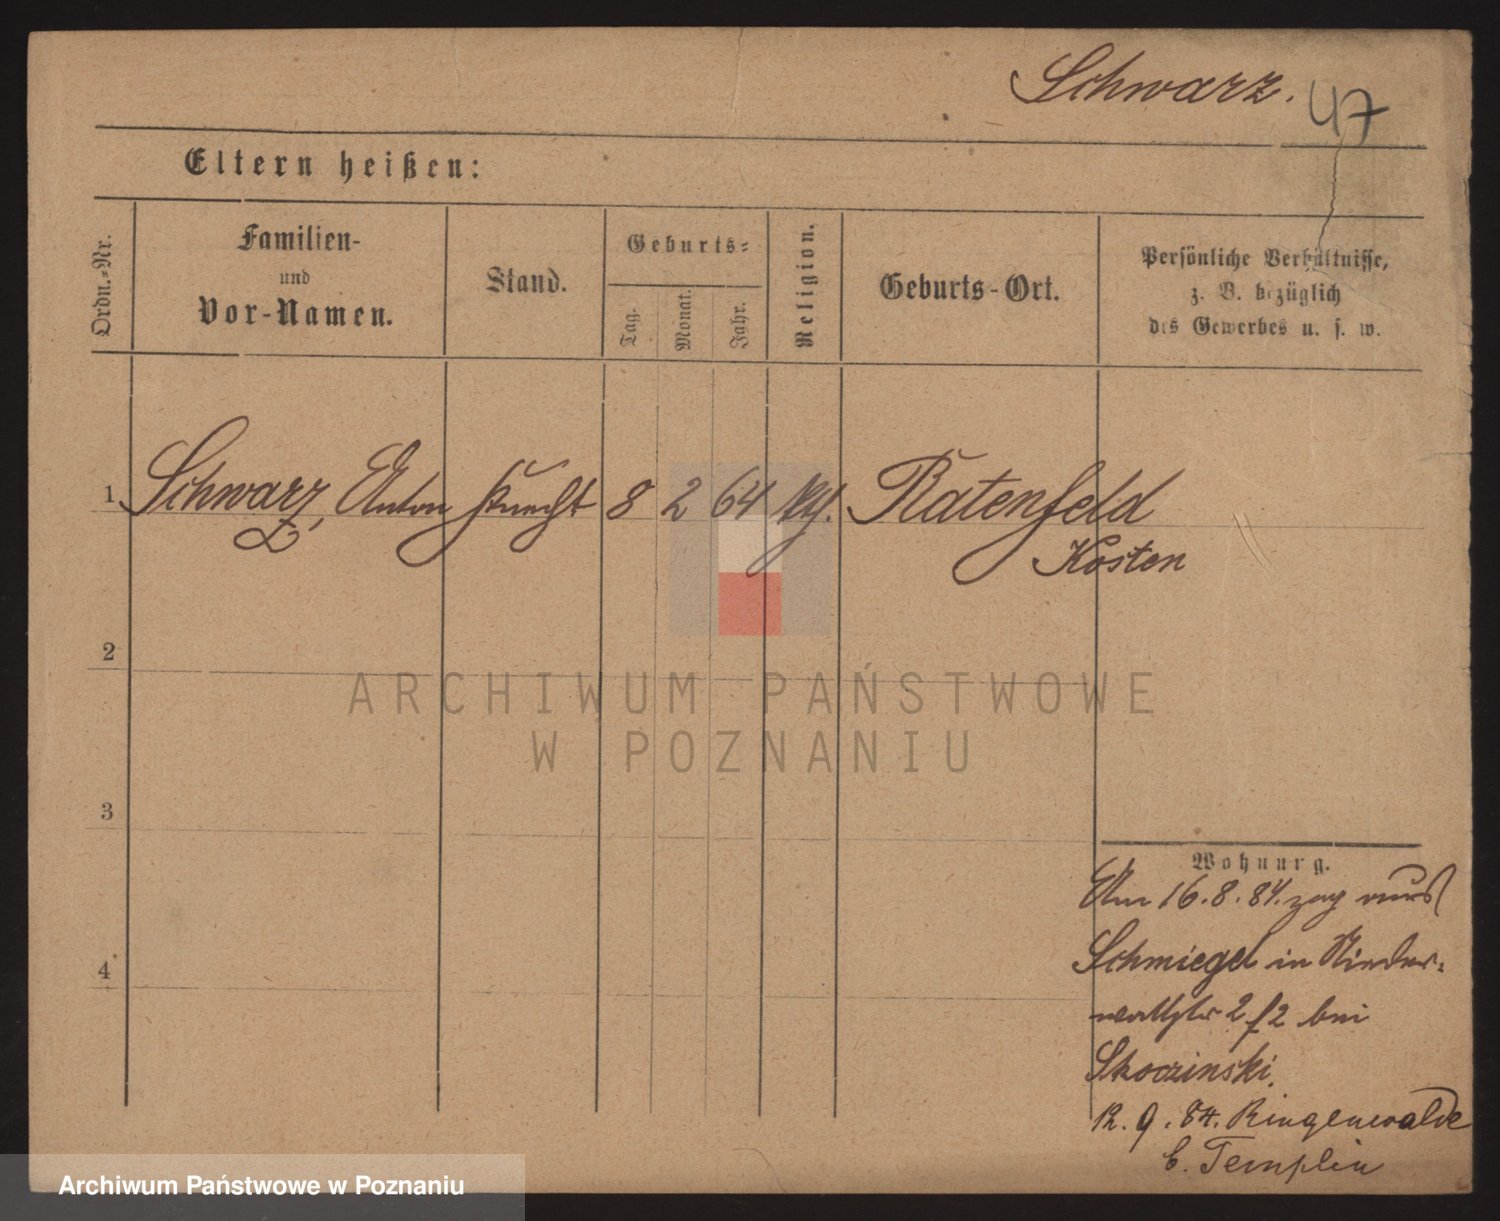 Schwarz. 47
Eltern heißen:
Ordn.-Nr.
Familien-
und
Vor-Namen.
Stand.
Geburts-
Tag.
Monat.
Jahr.
Religion.
Geburts-Ort.
Persönliche Verhältnisse,
z. B. bezüglich
des Gewerbes u. s. w.
1 Schwarz, Anton Knecht 8 2 64 Ratenfeld
Kosten
2
ARCHIWUM PAŃSTWOWE
W POZNANIU
3
Wohnung.
Am 16.8.84. zog aus
4
Schmiegel in Nieder-
wallstr 2 f2 bei
Skoczinski.
12.9.84. Ringenwalde
b. Templin
Archiwum Państwowe w Poznaniu